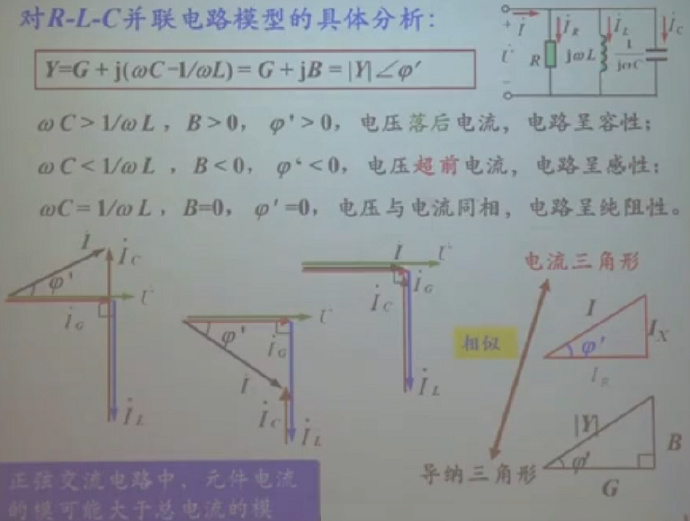 对R-L-C并联电路模型的具体分析:
Y=G+j(ωC-1/ωL)=G+jB=|Y|∠φ'
+ İ İR İL İC
U̇ R jωL 1/jωC
-
ωC>1/ωL,B>0,φ'>0,电压落后电流,电路呈容性;
ωC<1/ωL,B<0,φ‘<0,电压超前电流,电路呈感性;
ωC=1/ωL,B=0,φ'=0,电压与电流同相,电路呈纯阻性。
İ İC φ' U̇ İG İL
U̇ φ' İG İ İC İL
İ U̇ İG İC İL
电流三角形
I IX φ' IR
相似
|Y| B φ' G
导纳三角形
正弦交流电路中、元件电流
的模可能大于总电流的模